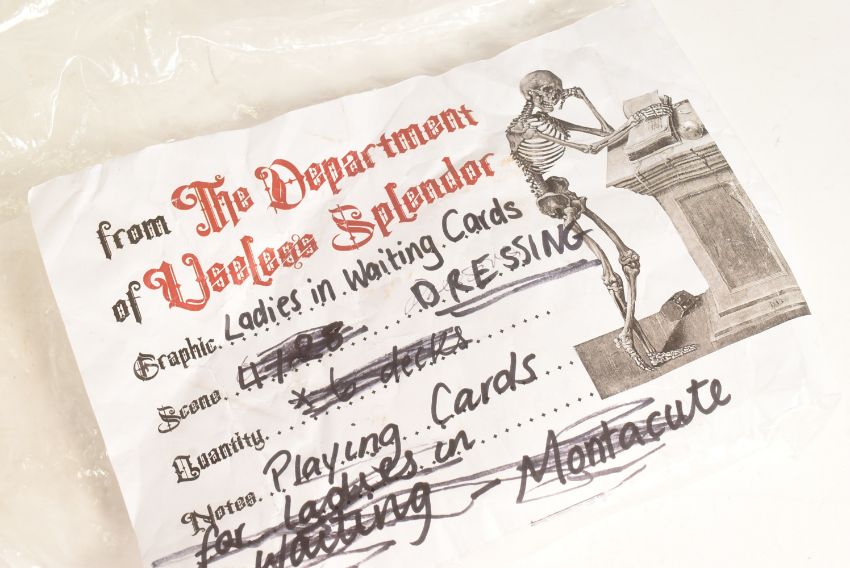 from The Department
of Useless Splendor
Graphic Ladies in Waiting Cards
DRESSING
Scene
Quantity * 6 decks
Notes Playing Cards
for Ladies in
Waiting - Montacute